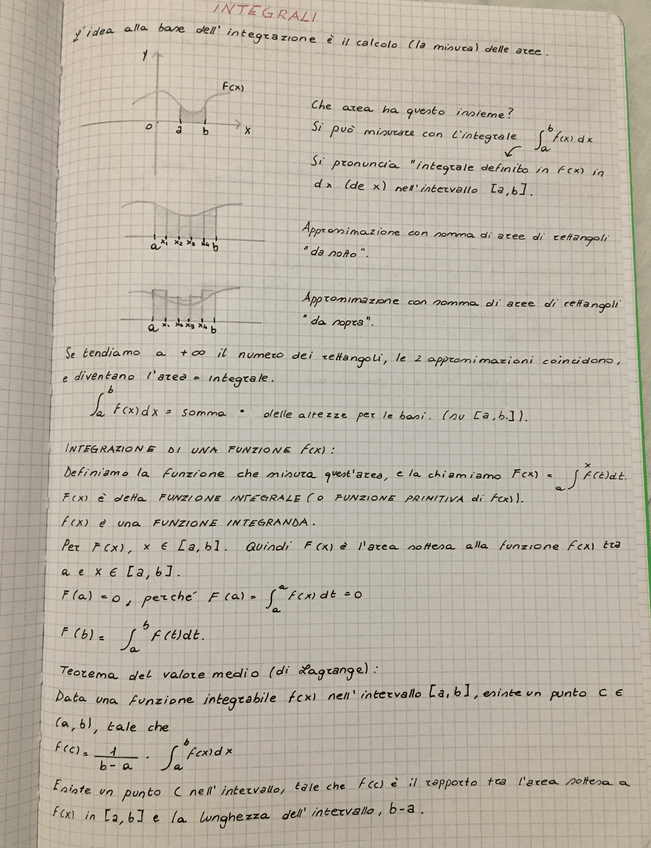 INTEGRALI
L'idea alla base dell'integrazione è il calcolo (la misura) delle aree.
y
F(x)
o a b x
Che area ha questo insieme?
Si può misurare con l'integrale ∫_a^b f(x) dx
Si pronuncia "integrale definito in f(x) in
dx (de x) nell'intervallo [a,b].
a x₁ x₂ x₃ x₄ b
Approssimazione con somma di aree di rettangoli
"da sotto".
a x₁ x₂ x₃ x₄ b
Approssimazione con somma di aree di rettangoli
"da sopra".
Se tendiamo a +∞ il numero dei rettangoli, le 2 approssimazioni coincidono,
e diventano l'area = integrale.
∫_a^b f(x)dx = somma • delle altezze per le basi. (su [a,b].)
INTEGRAZIONE DI UNA FUNZIONE f(x):
Definiamo la funzione che misura quest'area, e la chiamiamo F(x) = ∫_a^x f(t)dt.
F(x) è detta FUNZIONE INTEGRALE (O FUNZIONE PRIMITIVA di f(x)).
f(x) è una FUNZIONE INTEGRANDA.
Per F(x), x ∈ [a,b]. Quindi F(x) è l'area sottesa alla funzione f(x) tra
a e x ∈ [a,b].
F(a) = 0, perché F(a) = ∫_a^a f(x) dt = 0
F(b) = ∫_a^b F(t)dt.
Teorema del valore medio (di Lagrange):
Data una funzione integrabile f(x) nell'intervallo [a,b], esiste un punto C ∈
(a,b), tale che
f(c) = 1/(b-a) · ∫_a^b f(x)dx
Esiste un punto C nell'intervallo, tale che f(c) è il rapporto tra l'area sottesa a
f(x) in [a,b] e la lunghezza dell'intervallo, b-a.